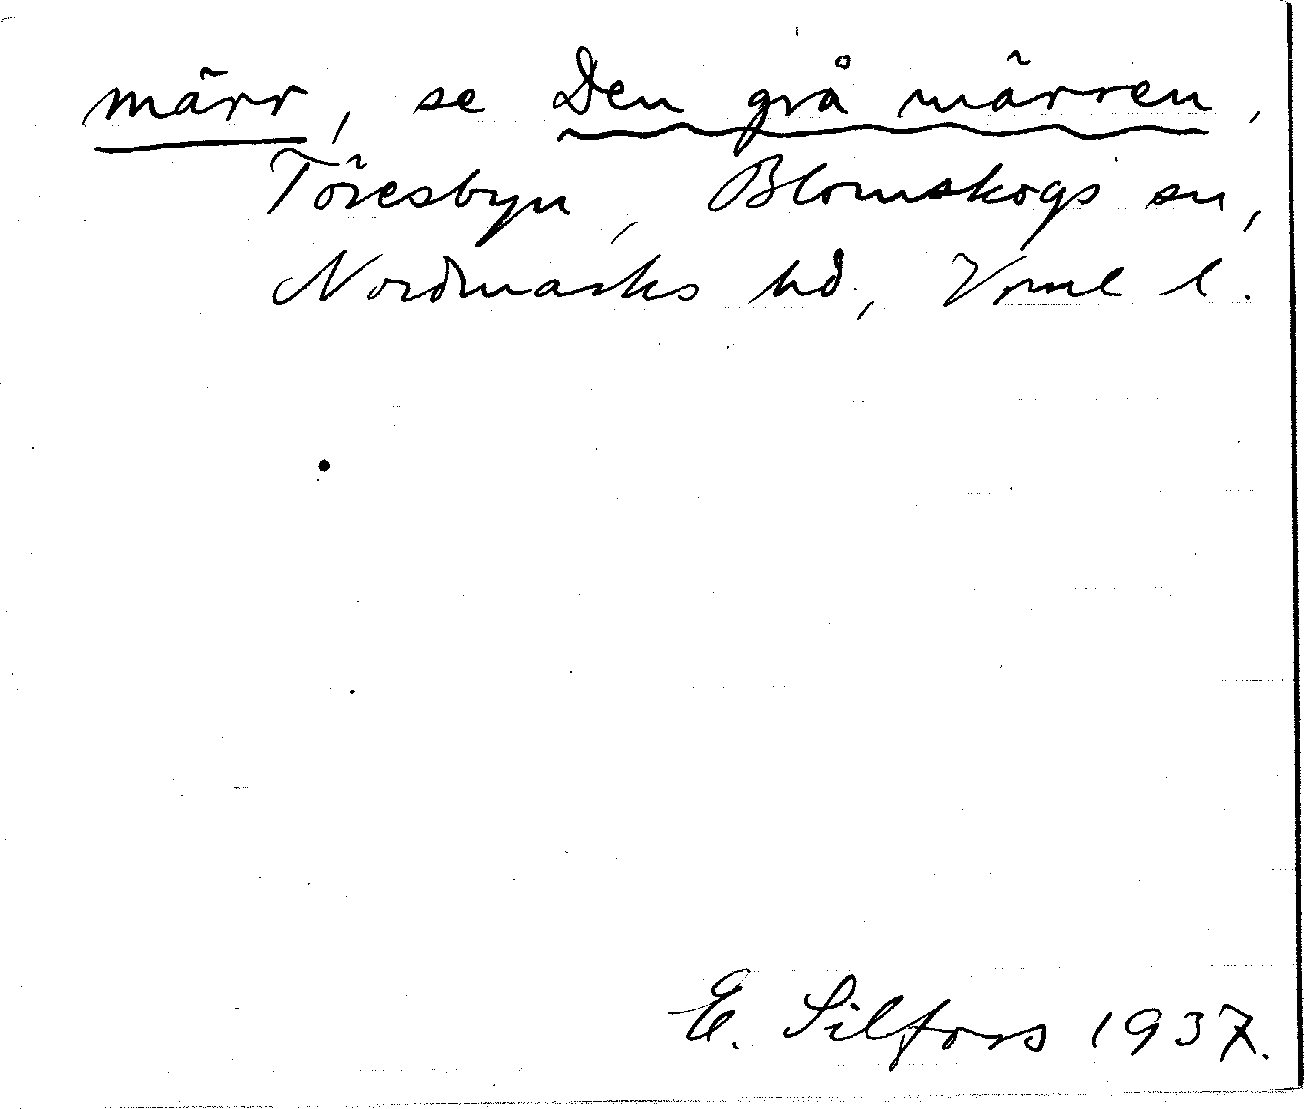 märr, se Den grå märren,
Töresbyn, Blomskogs sn,
Nordmarks hd, Vrml l.
E. Silfors 1937.